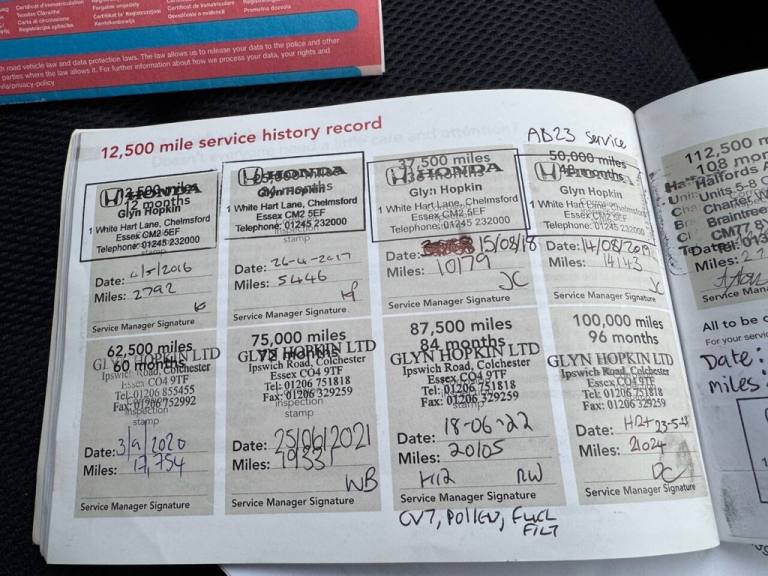 Certificat d'immatriculation
Teastas Cláraithe
Carta di circolazione
h road vehicle law and data protection laws. The law allows us to release your data to the police and other
parties where the law allows it. For further information about how we process your data, your rights and
privacy-policy
12,500 mile service history record
AD23 service
HONDA
12 months
Glyn Hopkin
1 White Hart Lane, Chelmsford
Essex CM2 5EF
Telephone: 01245 232000
Date: 11/5/2016
Miles: 2792
Service Manager Signature
HONDA
Glyn Hopkin
1 White Hart Lane, Chelmsford
Essex CM2 5EF
Telephone: 01245 232000
stamp
Date: 26-4-2017
Miles: 5446
Service Manager Signature
37,500 miles
HONDA
Glyn Hopkin
1 White Hart Lane, Chelmsford
Essex CM2 5EF
Telephone: 01245 232000
Date: 15/08/18
Miles: 10179
JC
Service Manager Signature
50,000 miles
HONDA
48 months
Glyn Hopkin
1 White Hart Lane, Chelmsford
Essex CM2 5EF
Telephone: 01245 232000
Date: 14/08/2019
Miles: 14143
JC
Service Manager Signature
62,500 miles
60 months
GLYN HOPKIN LTD
Ipswich Road, Colchester
Essex CO4 9TF
Tel: 01206 855455
Fax: 01206 752992
inspection
stamp
Date: 3/9/2020
Miles: 17,754
Service Manager Signature
75,000 miles
72 months
GLYN HOPKIN LTD
Ipswich Road, Colchester
Essex CO4 9TF
Tel: 01206 751818
Fax: 01206 329259
inspection
stamp
Date: 25/06/2021
Miles: 19331
WB
Service Manager Signature
87,500 miles
84 months
GLYN HOPKIN LTD
Ipswich Road, Colchester
Essex CO4 9TF
Tel: 01206 751818
Fax: 01206 329259
stamp
Date: 18-06-22
Miles: 20105
RW
Service Manager Signature
CVT, POLLEN, FUEL
FILT
100,000 miles
96 months
GLYN HOPKIN LTD
Ipswich Road, Colchester
Essex CO4 9TF
Tel: 01206 751818
Fax: 01206 329259
stamp
Date: 23-5-23
Miles: 21024
DC
Service Manager Signature
112,500 m
108 mon
Halfords A
Units 5-8 C
Charter W
Braintree
CM77 8Y
Date:
Miles:
Service Mana
All to be c
For your servic
Date:
Miles: